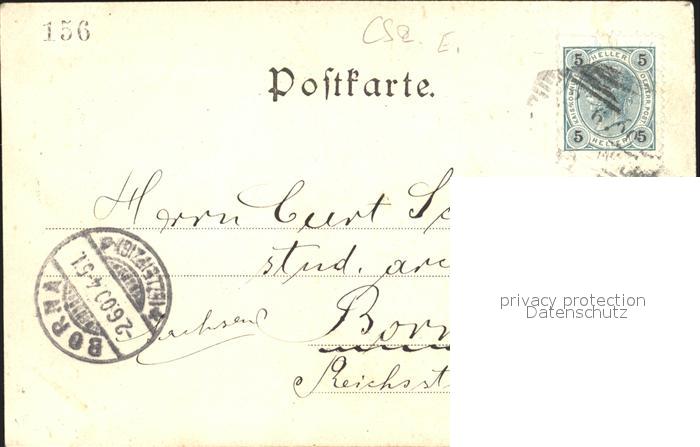 156
CS2. E.
Postkarte.
5 HELLER 5
5 HELLER 5
Herrn Curt Sc
stud. arc
Sachsen Born
Reichsst
BORNA
-2.6.00.4-5N.
(BZ.LEIPZIG)
privacy protection
Datenschutz